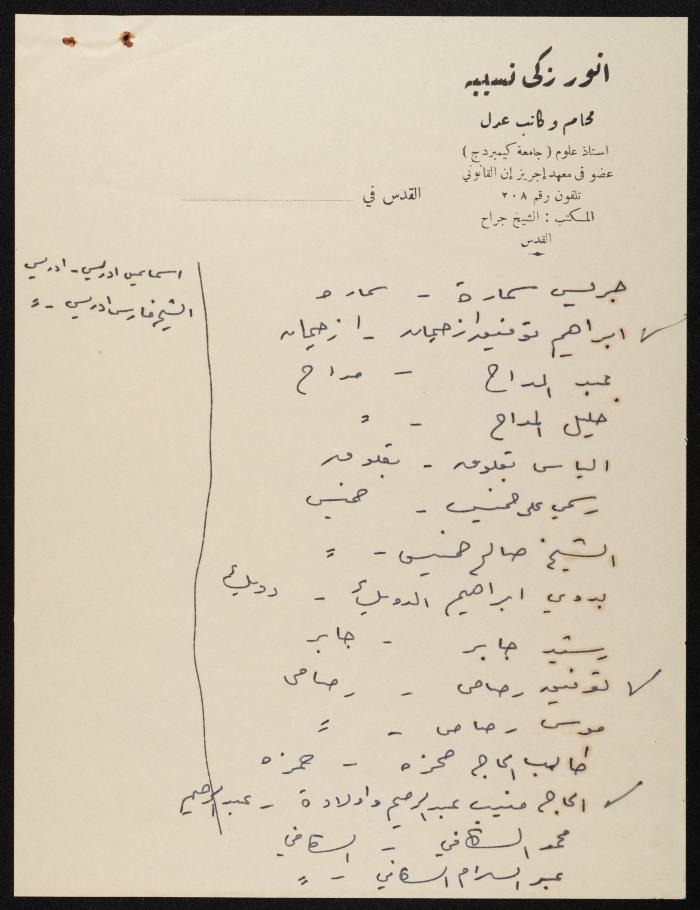 انور زكي نسيبه
محام وكاتب عدل
استاذ علوم (جامعة كيمبردج)
عضو في معهد إجريز إن القانوني
تلفون رقم ٢٠٨
المكتب : الشيخ جراح
القدس
القدس في
جريس سمارة - سماره
ابراهيم توفيق ازحيمان - ازحيمان
عبد المداح - مداح
خليل المداح - "
الياس بقلوق - بقلوق
رسمي علي خميس - خميس
الشيخ صالح خميس - "
بدوي ابراهيم الدويك - دويك
رشيد جابر - جابر
توفيق رصاص - رصاص
موسى رصاص - "
طالب الحاج حمزه - حمزه
الحاج منيب عبد الرحيم واولادة - عبد الرحيم
محمد الكافي - الكافي
عبد السلام الكافي - "
اسماعيل ادريس - ادريس
الشيخ فارس ادريس - "